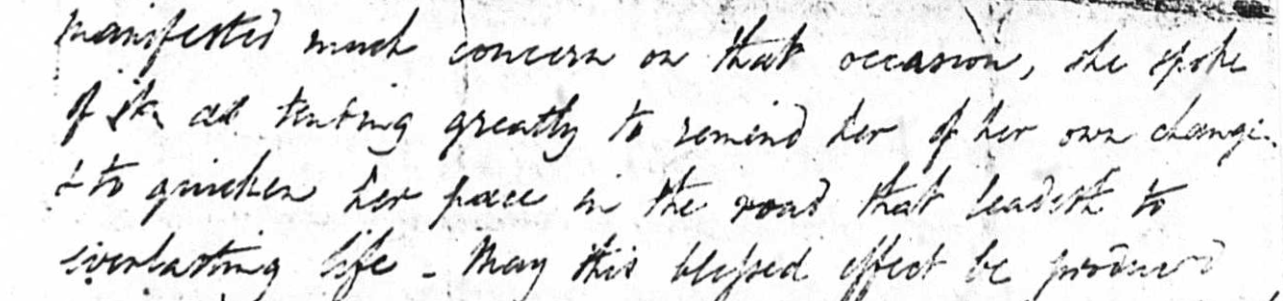 manifested much concern on that occasion, she spoke
of it, as tending greatly to remind her of her own change
& to quicken her pace in the road that leadeth to
everlasting life - May this blessed effect be produced